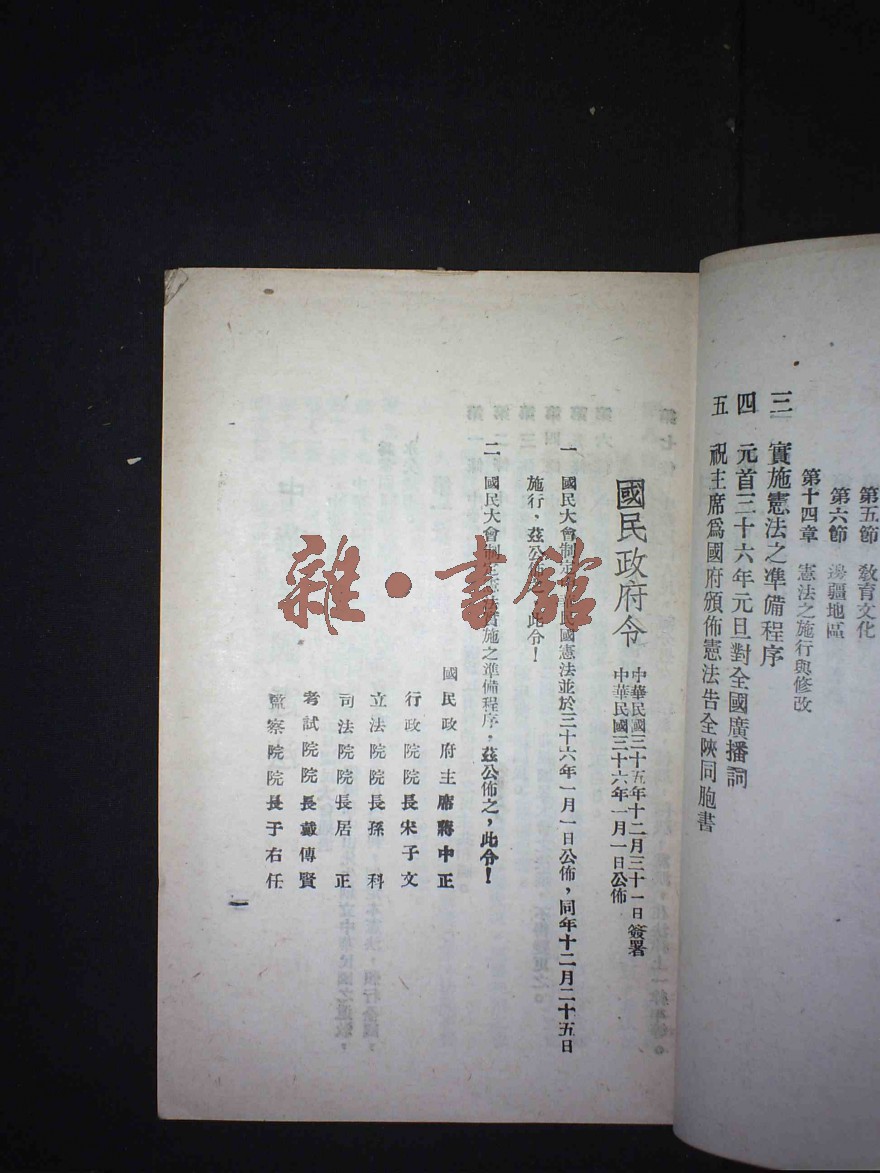 第五節　教育文化
第六節　邊疆地區
第十四章　憲法之施行與修改
三　實施憲法之準備程序
四　元首三十六年元旦對全國廣播詞
五　祝主席爲國府頒佈憲法告全陝同胞書
國民政府令
中華民國三十五年十二月三十一日簽署
中華民國三十六年一月一日公佈
一、國民大會制定中華民國憲法並於三十六年一月一日公佈，同年十二月二十五日
施行，茲公佈之，此令！
二、國民大會制定憲法實施之準備程序，茲公佈之，此令！
國民政府主席蔣中正
行政院院長宋子文
立法院院長孫　科
司法院院長居　正
考試院院長戴傳賢
監察院院長于右任
一
雜·書館